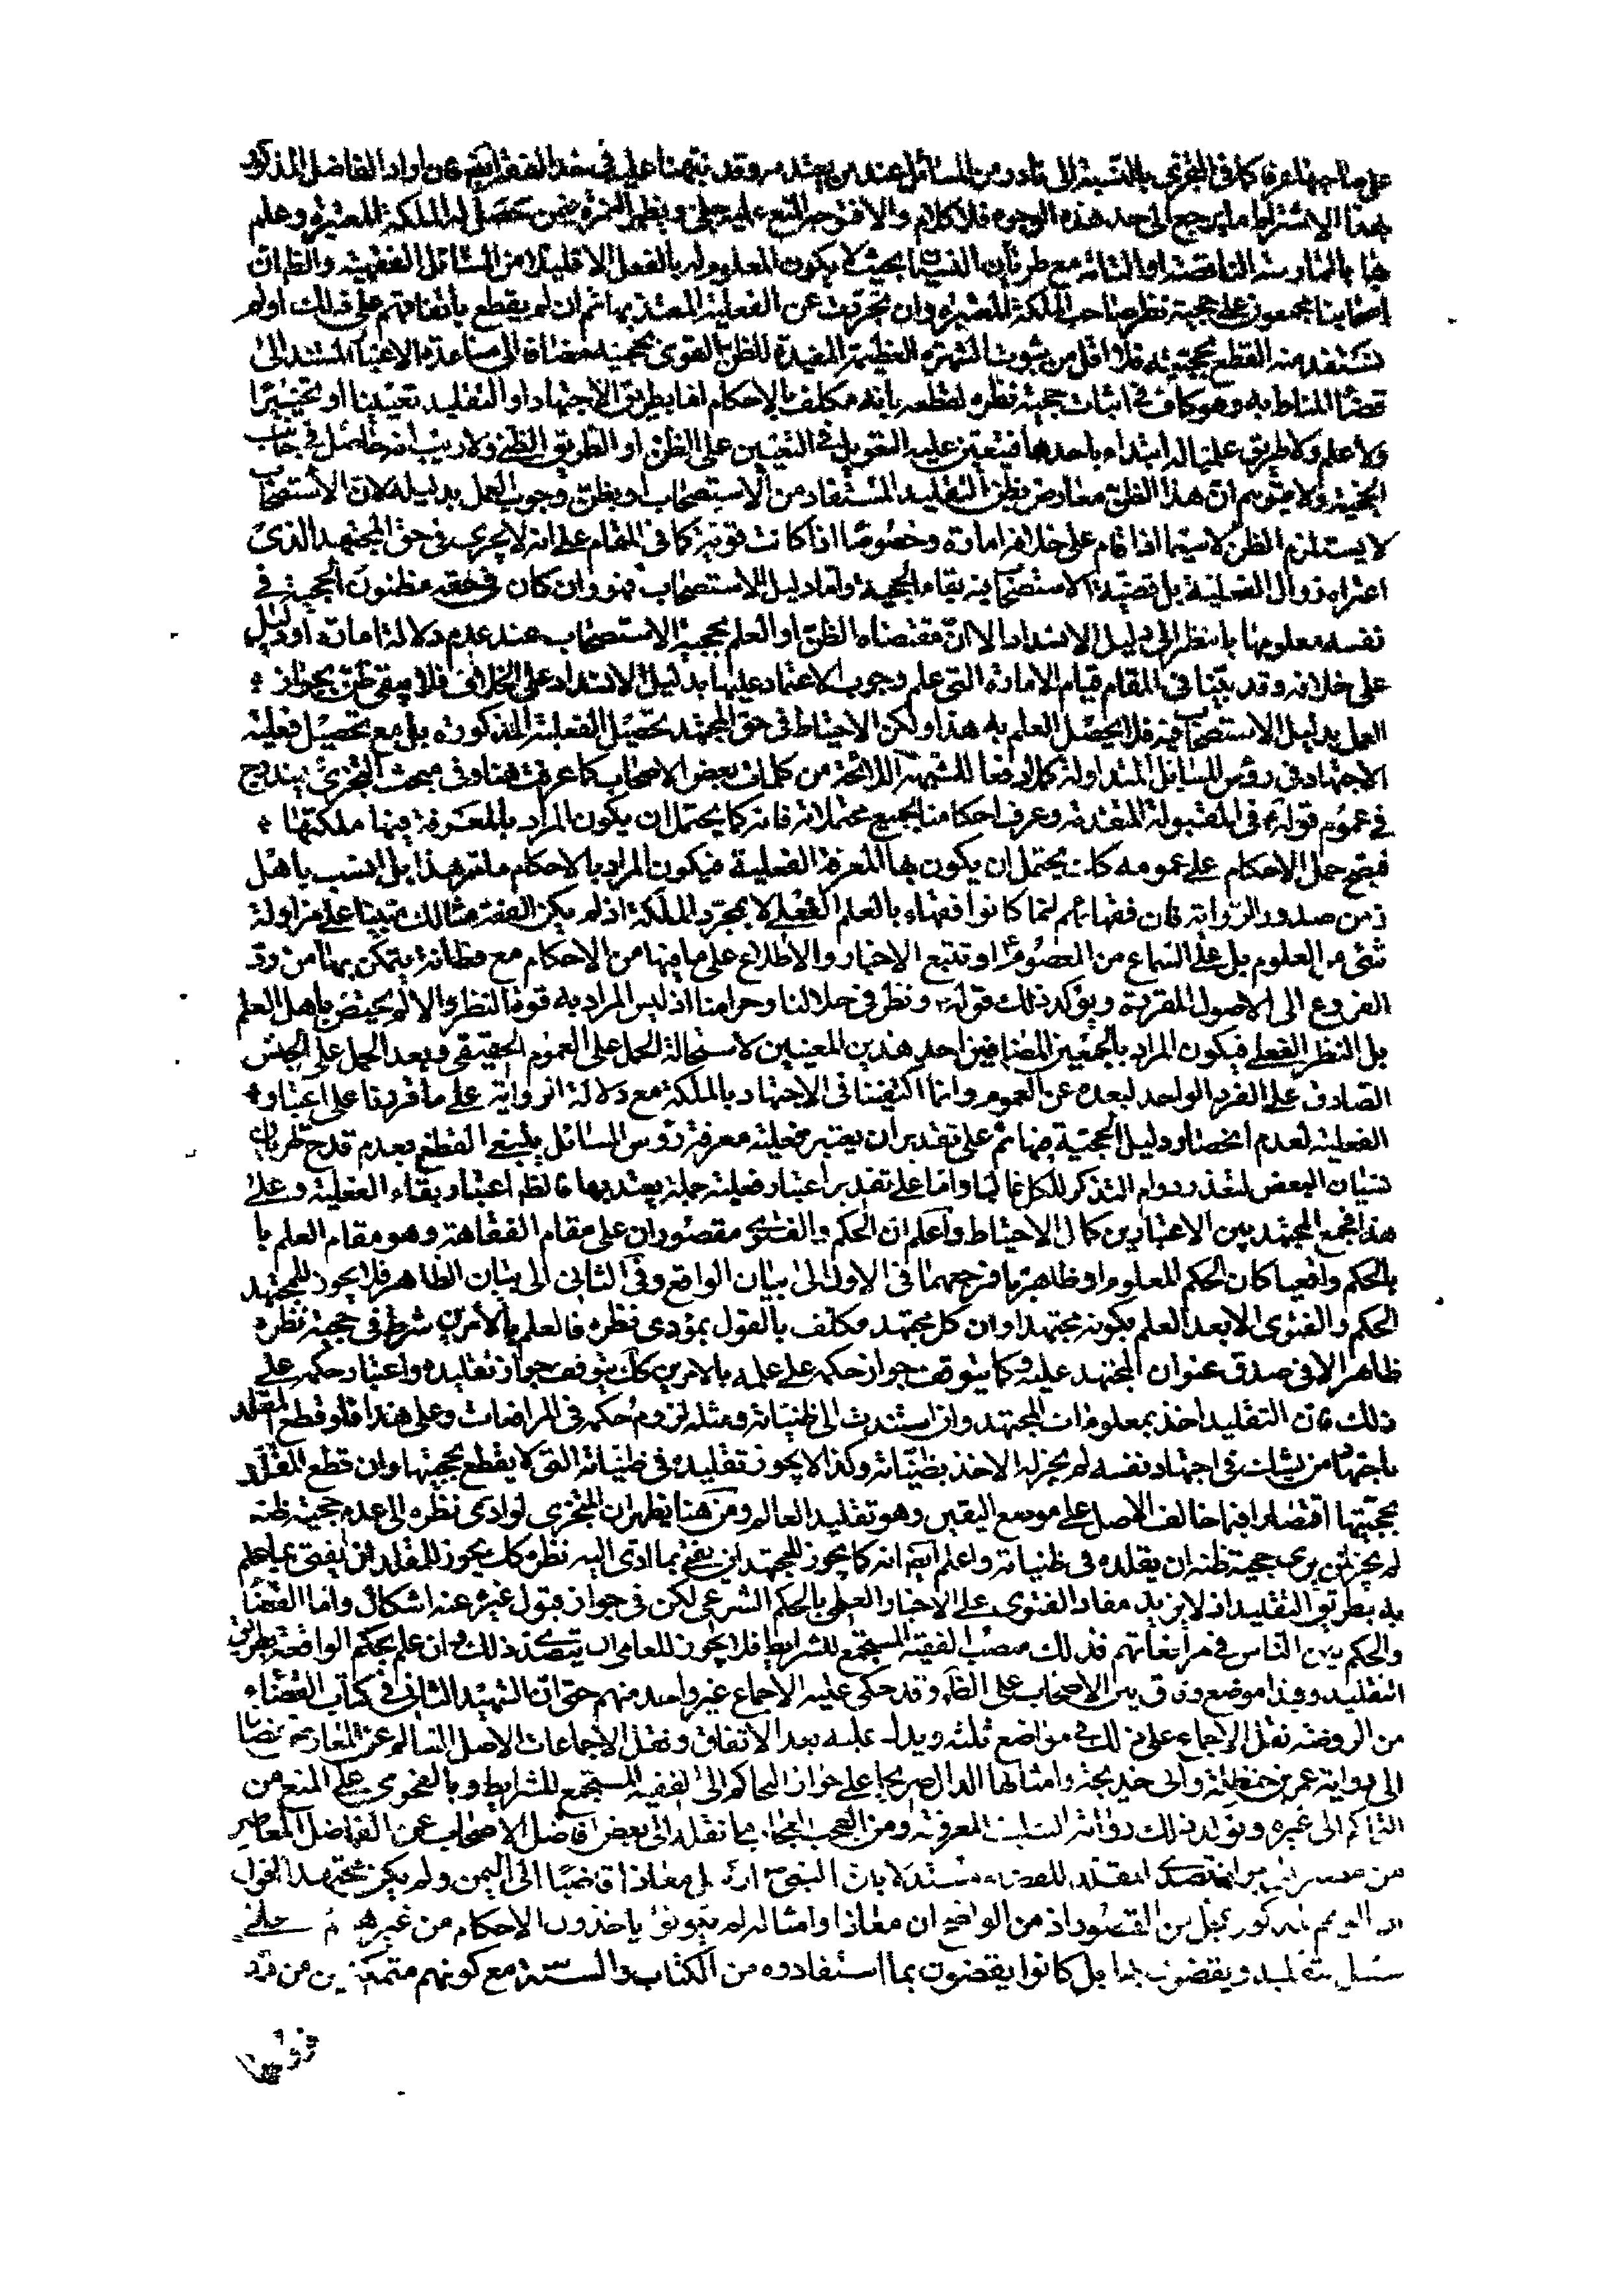 على صاحبها عرفا كما في المتجزي بالنسبة الى نادر من المسائل عند من يعتد به وقد نبهنا عليه في هذا الفقرا ايضا فان اراد الفاضل المذكور
بهذا الاشتراط ما يرجع الى احد هذه الوجوه فلا كلام والا فتوجه المنع عليه جلي ويظهر الثمرة فيمن تحصل له الملكة المعتبرة وعلم
بها بالممارسة الناقصة او التامة مع طريان النسيان بحيث لا يكون المعلوم له بالفعل الا قليلا من المسائل الفقهية والظ ان
اصحابنا مجمعون على حجية نظر صاحب الملكة المعتبرة وان تجردت عن الفعلية المعتد بها ثم ان لم يقطع باتفاقهم على ذلك او لم
نستفد منه القطع بحجيته فلا اقل من ثبوت الشهرة العظيمة المفيدة للظن القوي بحجيته مضافا الى مساعدة الاعتبار المستند الى
قضاء المناط به وهو كاف في اثبات حجية نظره لقطعه بانه مكلف بالاحكام اما بطريق الاجتهاد او التقليد تعيينا او تخييرا
ولا علم ولا طريق علميا له ابتداء باحدهما فيتعين عليه التعويل في التعيين على الظن او الطريق الظني ولا ريب انه حاصل في جانب
الحجية ولا يتوهم ان هذا الظن معارض بظن التقليد المستفاد من الاستصحاب او بظن وجوب العمل بدليله لان الاستصحاب
لا يستلزم الظن لا سيما اذا قام على خلافه امارة وخصوصا اذا كانت قوية كما في المقام على انه لا يجري في حق المجتهد الذي
اعتراه زوال الفعلية بل قضية الاستصحاب فيه بقاء الحجية واما دليل الاستصحاب فهو وان كان في حقه مظنون الحجية في
نفسه معلومها بالنظر الى دليل الانسداد الا ان مقتضاه الظن او العلم بحجية الاستصحاب عند عدم دلالة امارة او دليل
على خلافه وقد بينا في المقام قيام الامارة التي علم وجوب الاعتماد عليها بدليل الانسداد على الخلاف فلا يبقى ظن بجواز
العمل بدليل الاستصحاب فيه فلا يحصل العلم به هذا ولكن الاحتياط في حق المجتهد تحصيل الفعلية المذكورة بل مع تحصيل فعلية
الاجتهاد في رؤس المسائل المتداولة كملا دفعا للشبهة اللائحة من كلمات بعض الاصحاب كما عرفت هنا وفي مبحث التجزي يندرج
في عموم قوله ع في المقبولة المتقدمة وعرف احكامنا بجميع محتملاته فانه كما يحتمل ان يكون المراد بالمعرفة فيها ملكتها
فيتجه حمل الاحكام على عمومه كك يحتمل ان يكون بها المعرفة الفعلية فيكون المراد بالاحكام ما مر هذا بل انسب باهل
زمن صدور الرواية فان فقهائهم انما كانوا فقهاء بالعلم الفعلي لا بمجرد الملكة اذ لم يكن الفقه هنالك مبتنيا على مزاولة
شئ من العلوم بل على السماع من المعصوم ع او تتبع الاخبار والاطلاع على ما فيها من الاحكام مع فطانة يتمكن بها من رد
الفروع الى الاصول المقررة ويؤكد ذلك قوله ع ونظر في حلالنا وحرامنا اذ ليس المراد به قوة النظر والا لم يختص باهل العلم
بل النظر الفعلي فيكون المراد بالجمعين المضافين احد هذين المعنيين لاستحالة الحمل على العموم الحقيقي وبعد الحمل على الجنس
الصادق على الفرد الواحد لبعده عن العموم وانما اكتفينا في الاجتهاد بالملكة مع دلالة الرواية على ما قررنا على اعتبار
الفعلية لعدم انحصار دليل الحجية فيها ثم على تقدير ان يعتبر فعلية معرفة رؤس المسائل ينبغي القطع بعدم قدح طريان
نسيان البعض لتعذر دوام التذكر للكل غالبا واما على تقدير اعتبار فعلية جملة يعتد بها فالظ اعتبار بقاء الفعلية وعلى
هذا فجمع المجتهد بين الاعتبارين كمال الاحتياط واعلم ان الحكم والفتوى مقصوران على مقام الفقاهة وهو مقام العلم با
بالحكم واقعيا كان الحكم المعلوم او ظاهريا فمرجعهما في الاول الى بيان الواقع وفي الثاني الى بيان الظاهر فلا يجوز للمجتهد
الحكم والفتوى الا بعد العلم بكونه مجتهدا وان كل مجتهد مكلف بالقول بمؤدى نظره فالعلم بالامرين شرط في حجية نظره
ظاهرا لا في صدق عنوان المجتهد عليه وكما يتوقف جواز حكمه على علمه بالامرين كك يتوقف جواز تقليده واعتبار حكمه على
ذلك فان التقليد اخذ بمعلومات المجتهد وان استندت الى ظنياته ومثله لزوم حكمه في المرافعات وعلى هذا فلو قطع المقلد
باجتهاد من يشك في اجتهاد نفسه لم يجز له الاخذ بظنياته وكذا لا يجوز تقليده في ظنياته التي لا يقطع بحجيتها وان قطع المقلد
بحجيتها اقتصارا فيما خالف الاصل على موضع اليقين وهو تقليد العالم ومن هنا يظهر ان المتجزي لو ادى نظره الى عدم حجية ظنه
لم يجز لمن يرى حجية ظنه ان يقلده في ظنياته واعلم ايضا انه كما يجوز للمجتهد ان يفتي بما ادى اليه نظره كك يجوز للمقلد ان يفتي بما علم
به بطريق التقليد اذ لا يزيد مفاد الفتوى على الاخبار العلمي بالحكم الشرعي لكن في جواز قبول غيره عنه اشكال واما القضاء
والحكم بين الناس في مرافعاتهم فذلك منصب الفقيه المستجمع للشرايط فلا يجوز للعامي ان يتصدى ذلك وان علم بحكم الواقعة بطريق
التقليد وهذا موضع وفاق بين الاصحاب على الظ وقد حكى عليه الاجماع غير واحد منهم حتى ان الشهيد الثاني في كتاب القضاء
من الروضة نقل الاجماع على ذلك في مواضع ثلثة ويدل عليه بعد الاتفاق ونقل الاجماعات الاصل السالم عن المعارض مضافا
الى رواية عمر بن حنظلة وابي خديجة وامثالها الدال صريحا على جواز التحاكم الى الفقيه المستجمع للشرايط وبالفحوى على المنع من
التحاكم الى غيره ويؤيد ذلك رواية السابقة المعروفة ومن العجب العجاب ما نقله الي بعض افاضل الاصحاب عن الفاضل المعاصر
من تصدى المقلد للقضاء مستدلا بان النبي ص ارسل معاذا قاضيا الى اليمن ولم يكن مجتهدا القول
المذكور بمثل من القصور اذ من الواضح ان معاذا وامثاله لم يكونوا ياخذون الاحكام من غيره على
سبيل التقليد ويقضون بها بل كانوا يقضون بما استفادوه من الكتاب والسنة مع كونهم متمكنين من رد